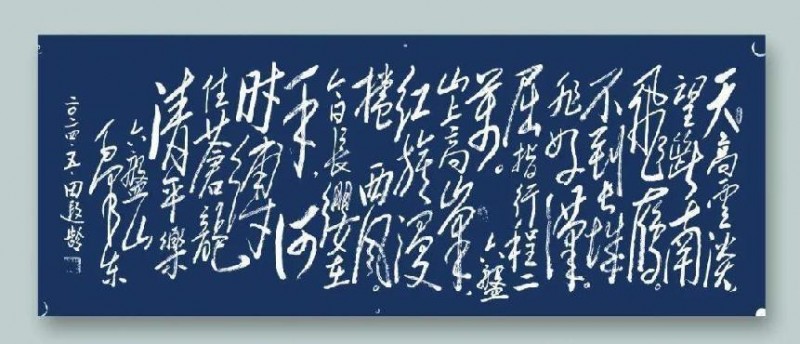 天高雲淡
望斷南
飛雁。
不到长城
非好漢。
屈指行程二
萬。六盤
山上高峯，
红旗漫
捲西風。
今日長缨在
手，何
时缚
住蒼龍
清平樂
六盤山
毛泽东
二〇二四·五·田